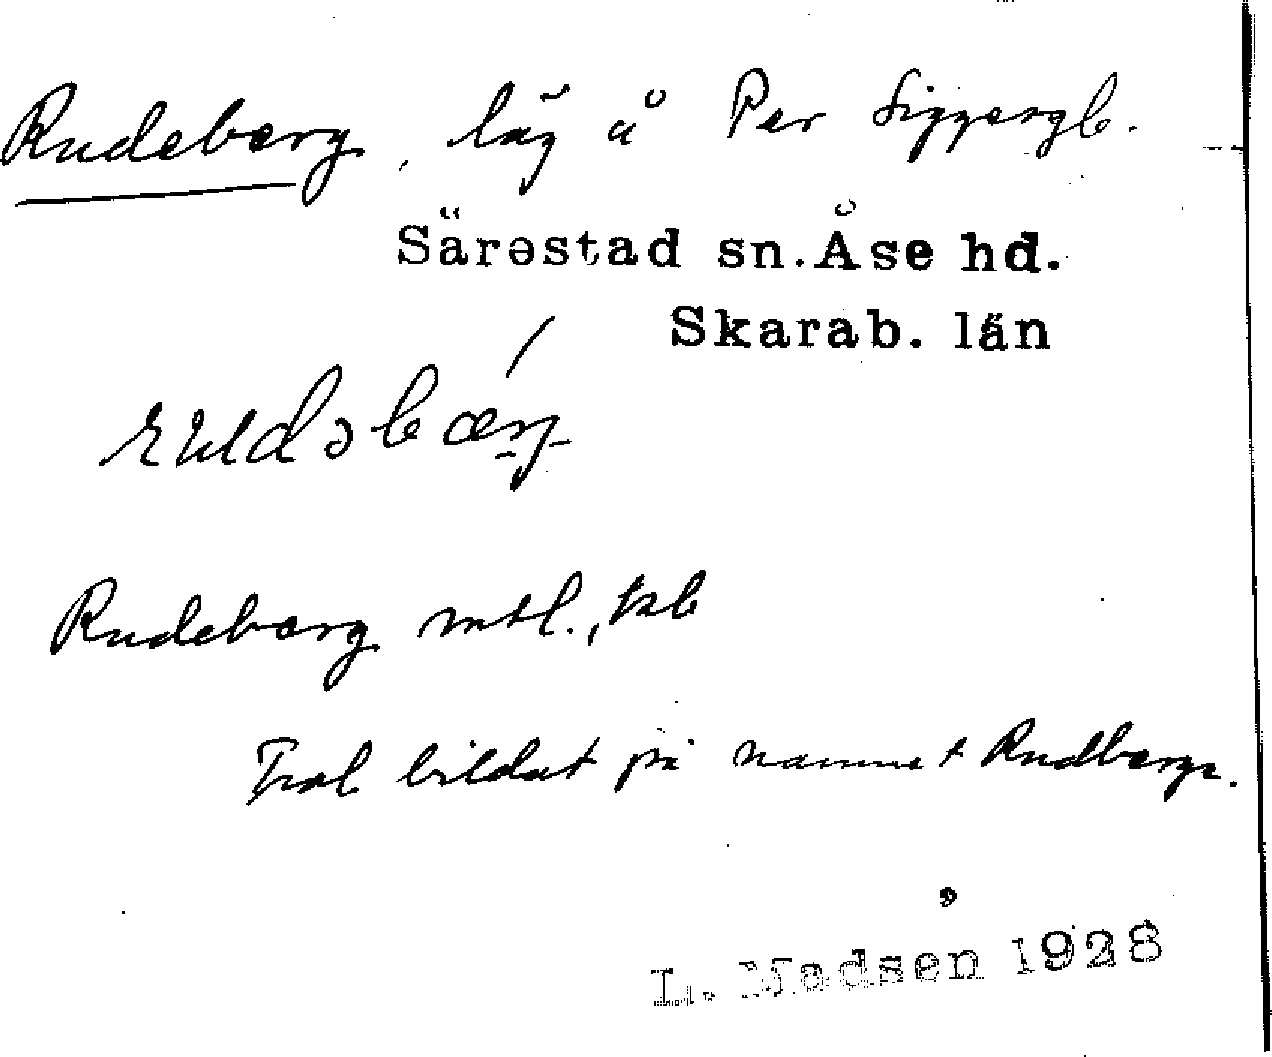 Rudeberg, låg å Per Siggesgb.
Särestad sn. Åse hd.
Skarab. län
Rudeberg mtl.,
Trol bildat på namnet Rudberga.
L. Madsen 1928